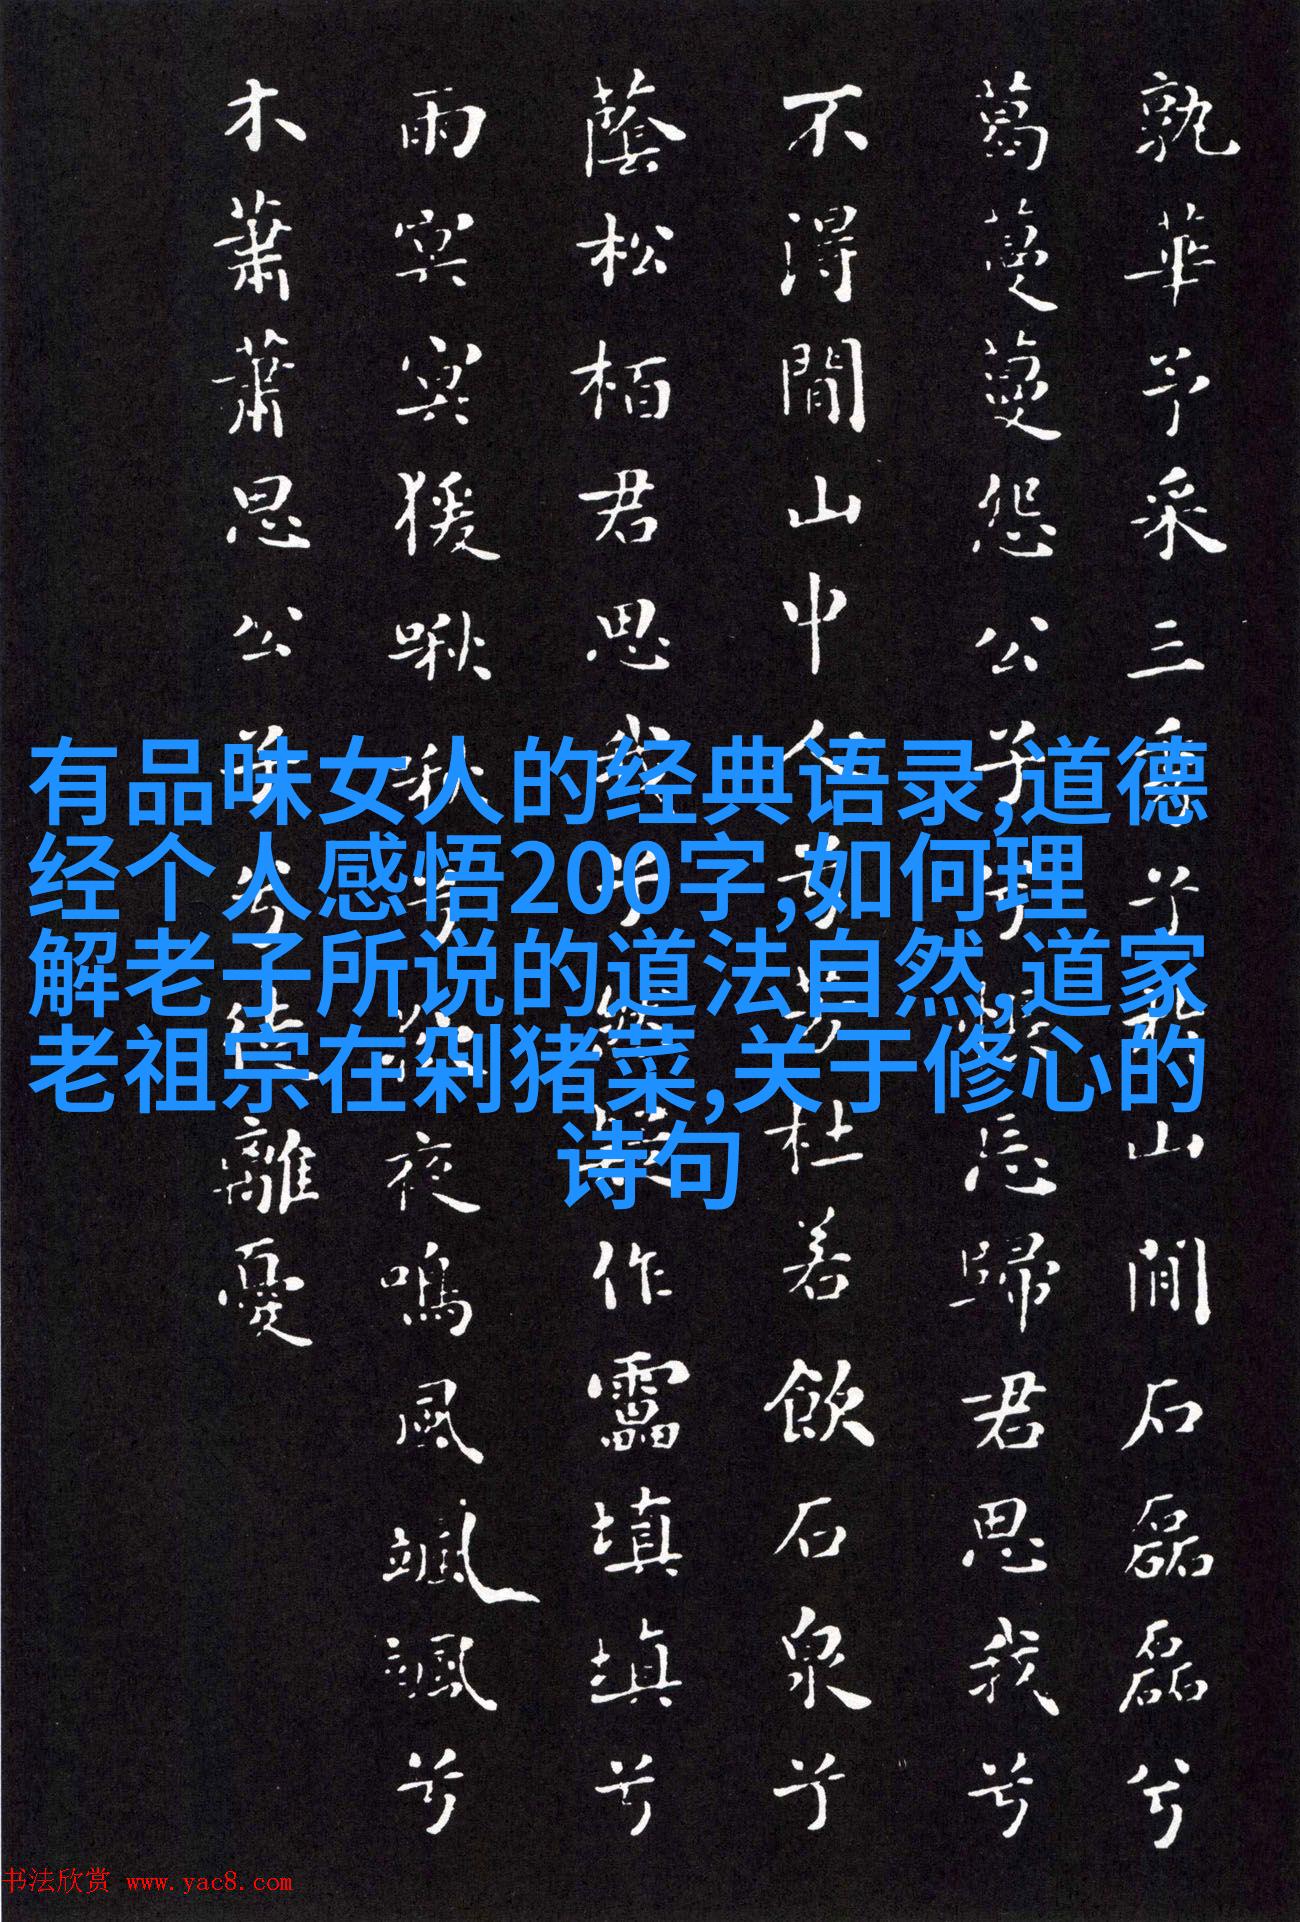 孰華予采三秀兮於山閒石磊磊兮
葛蔓蔓怨公子兮悵忘歸君思我兮
不得閒山中人兮芳杜若飲石泉兮
蔭松柏君思我兮然疑作靁填填兮
雨冥冥猨啾啾兮狖夜鳴風颯颯兮
木蕭蕭思公子兮徒離憂
有品味女人的经典语录,道德
经个人感悟200字,如何理
解老子所说的道法自然,道家
老祖宗在剁猪菜,关于修心的
诗句
书法欣赏 www.yac8.com